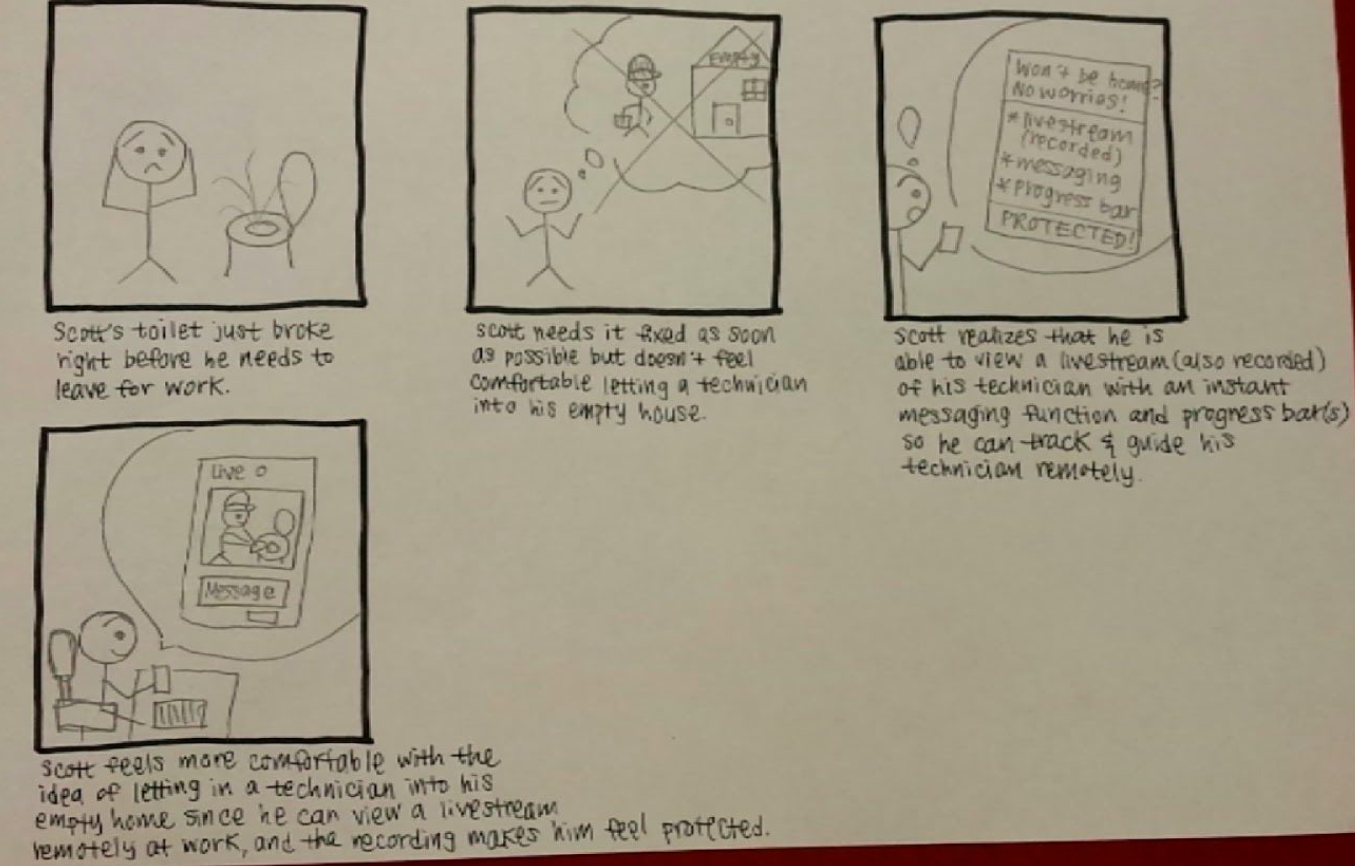 Scott's toilet just broke
right before he needs to
leave for work.
Empty
Scott needs it fixed as soon
as possible but doesn't feel
comfortable letting a technician
into his empty house.
Won't be home?
No worries!
*livestream
(recorded)
*messaging
*progress bar
PROTECTED!
Scott realizes that he is
able to view a livestream (also recorded)
of his technician with an instant
messaging function and progress bar(s)
so he can track & guide his
technician remotely.
Live
Message
Scott feels more comfortable with the
idea of letting in a technician into his
empty home since he can view a livestream
remotely at work, and the recording makes him feel protected.